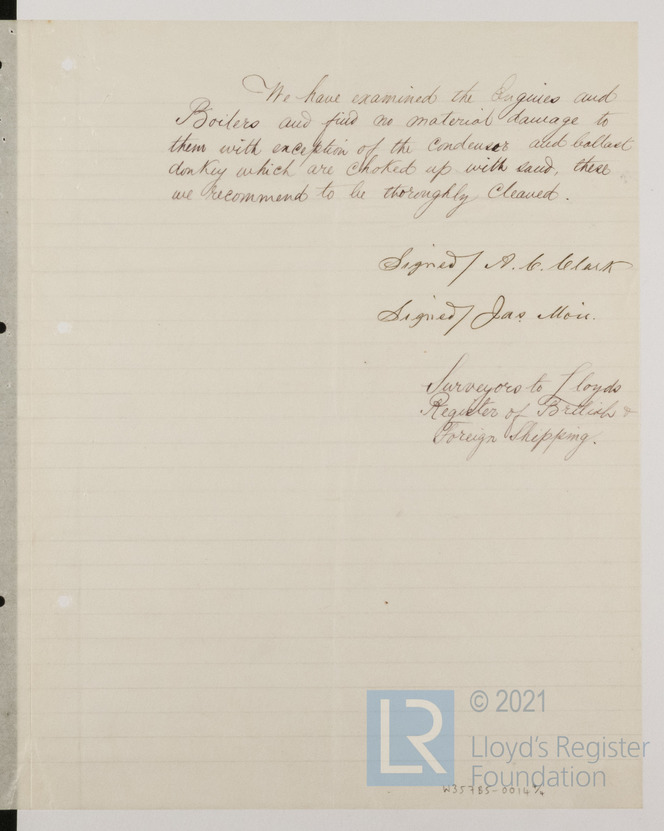 We have examined the Engines and
Boilers and find no material damage to
them with exception of the condensor and ballast
donkey which are choked up with sand, these
we recommend to be thoroughly cleaned.
Signed/ A. C. Clark
Signed/ Jas. Moir.
Surveyors to Lloyds
Register of British &
Foreign Shipping.
LR
© 2021
Lloyd's Register
Foundation
W35785-0014